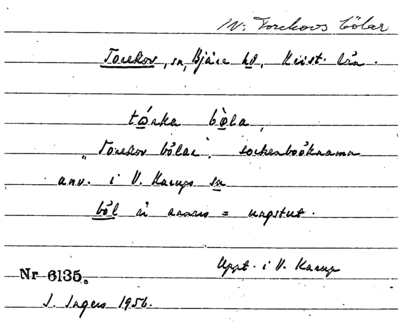 IV: Torekovs bölar
Torekov, sn, Bjäre hd, Krist. län.
tórka bòla,
"Torekov bölar", sockenboöknamn
anv. i V. Karups sn
böl är annars = nagstut.
Uppt. i V. Karup
Nr 6135.
J. Ingers 1956.